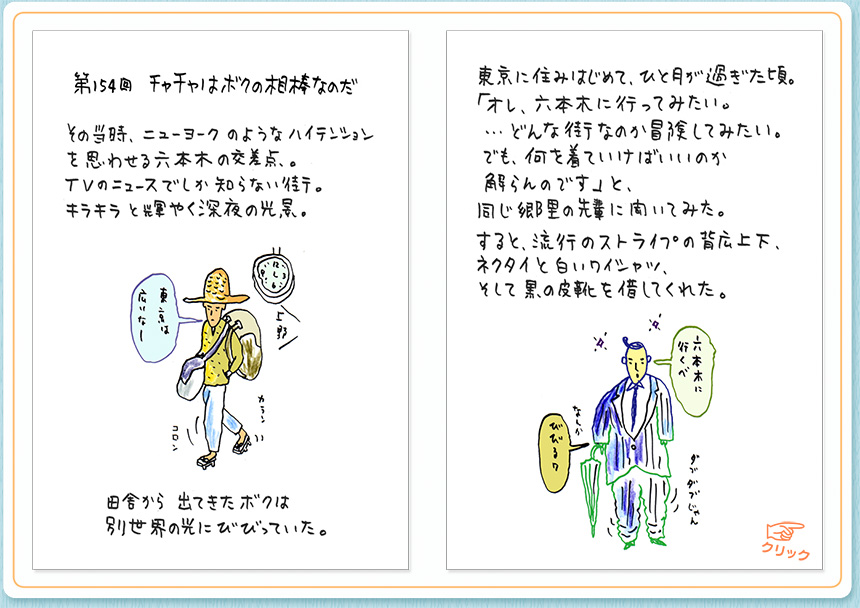 第154回 チャチャはボクの相棒なのだ
その当時、ニューヨークのようなハイテンション
を思わせる六本木の交差点、。
TVのニュースでしか知らない街。
キラキラと輝やく深夜の光景。
東京は
広いなー
上野
カラン
コロン
田舎から出てきたボクは
別世界の光にびびっていた。
東京に住みはじめて、ひと月が過ぎた頃。
「オレ、六本木に行ってみたい。
…どんな街なのか冒険してみたい。
でも、何を着ていけばいいのか
解らんのです」と、
同じ郷里の先輩に聞いてみた。
すると、流行のストライプの背広上下、
ネクタイと白いワイシャツ、
そして黒の皮靴を借してくれた。
六本木に
行くべ
なんか
びびるワ
ダブダブじゃん
クリック